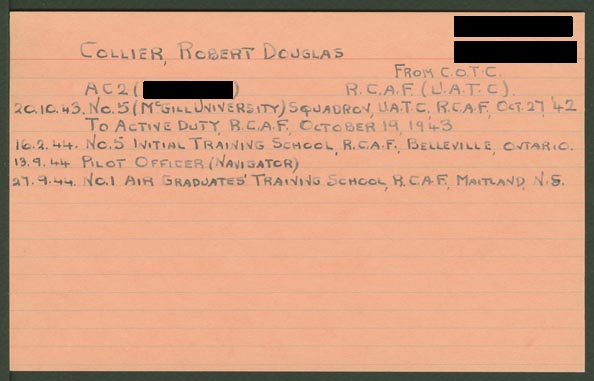 COLLIER, ROBERT DOUGLAS
FROM C.O.T.C.
AC2 ( ) R.C.A.F. (U.A.T.C).
20.10.43. NO.5 (MCGILL UNIVERSITY) SQUADRON, U.A.T.C. R.C.A.F., OCT. 27, '42
TO ACTIVE DUTY, R.C.A.F., OCTOBER 19, 1943
16.2.44. NO.5 INITIAL TRAINING SCHOOL, R.C.A.F., BELLEVILLE, ONTARIO.
13.9.44 PILOT OFFICER (NAVIGATOR)
27.9.44. NO.1 AIR GRADUATES' TRAINING SCHOOL, R.C.A.F., MAITLAND, N.S.